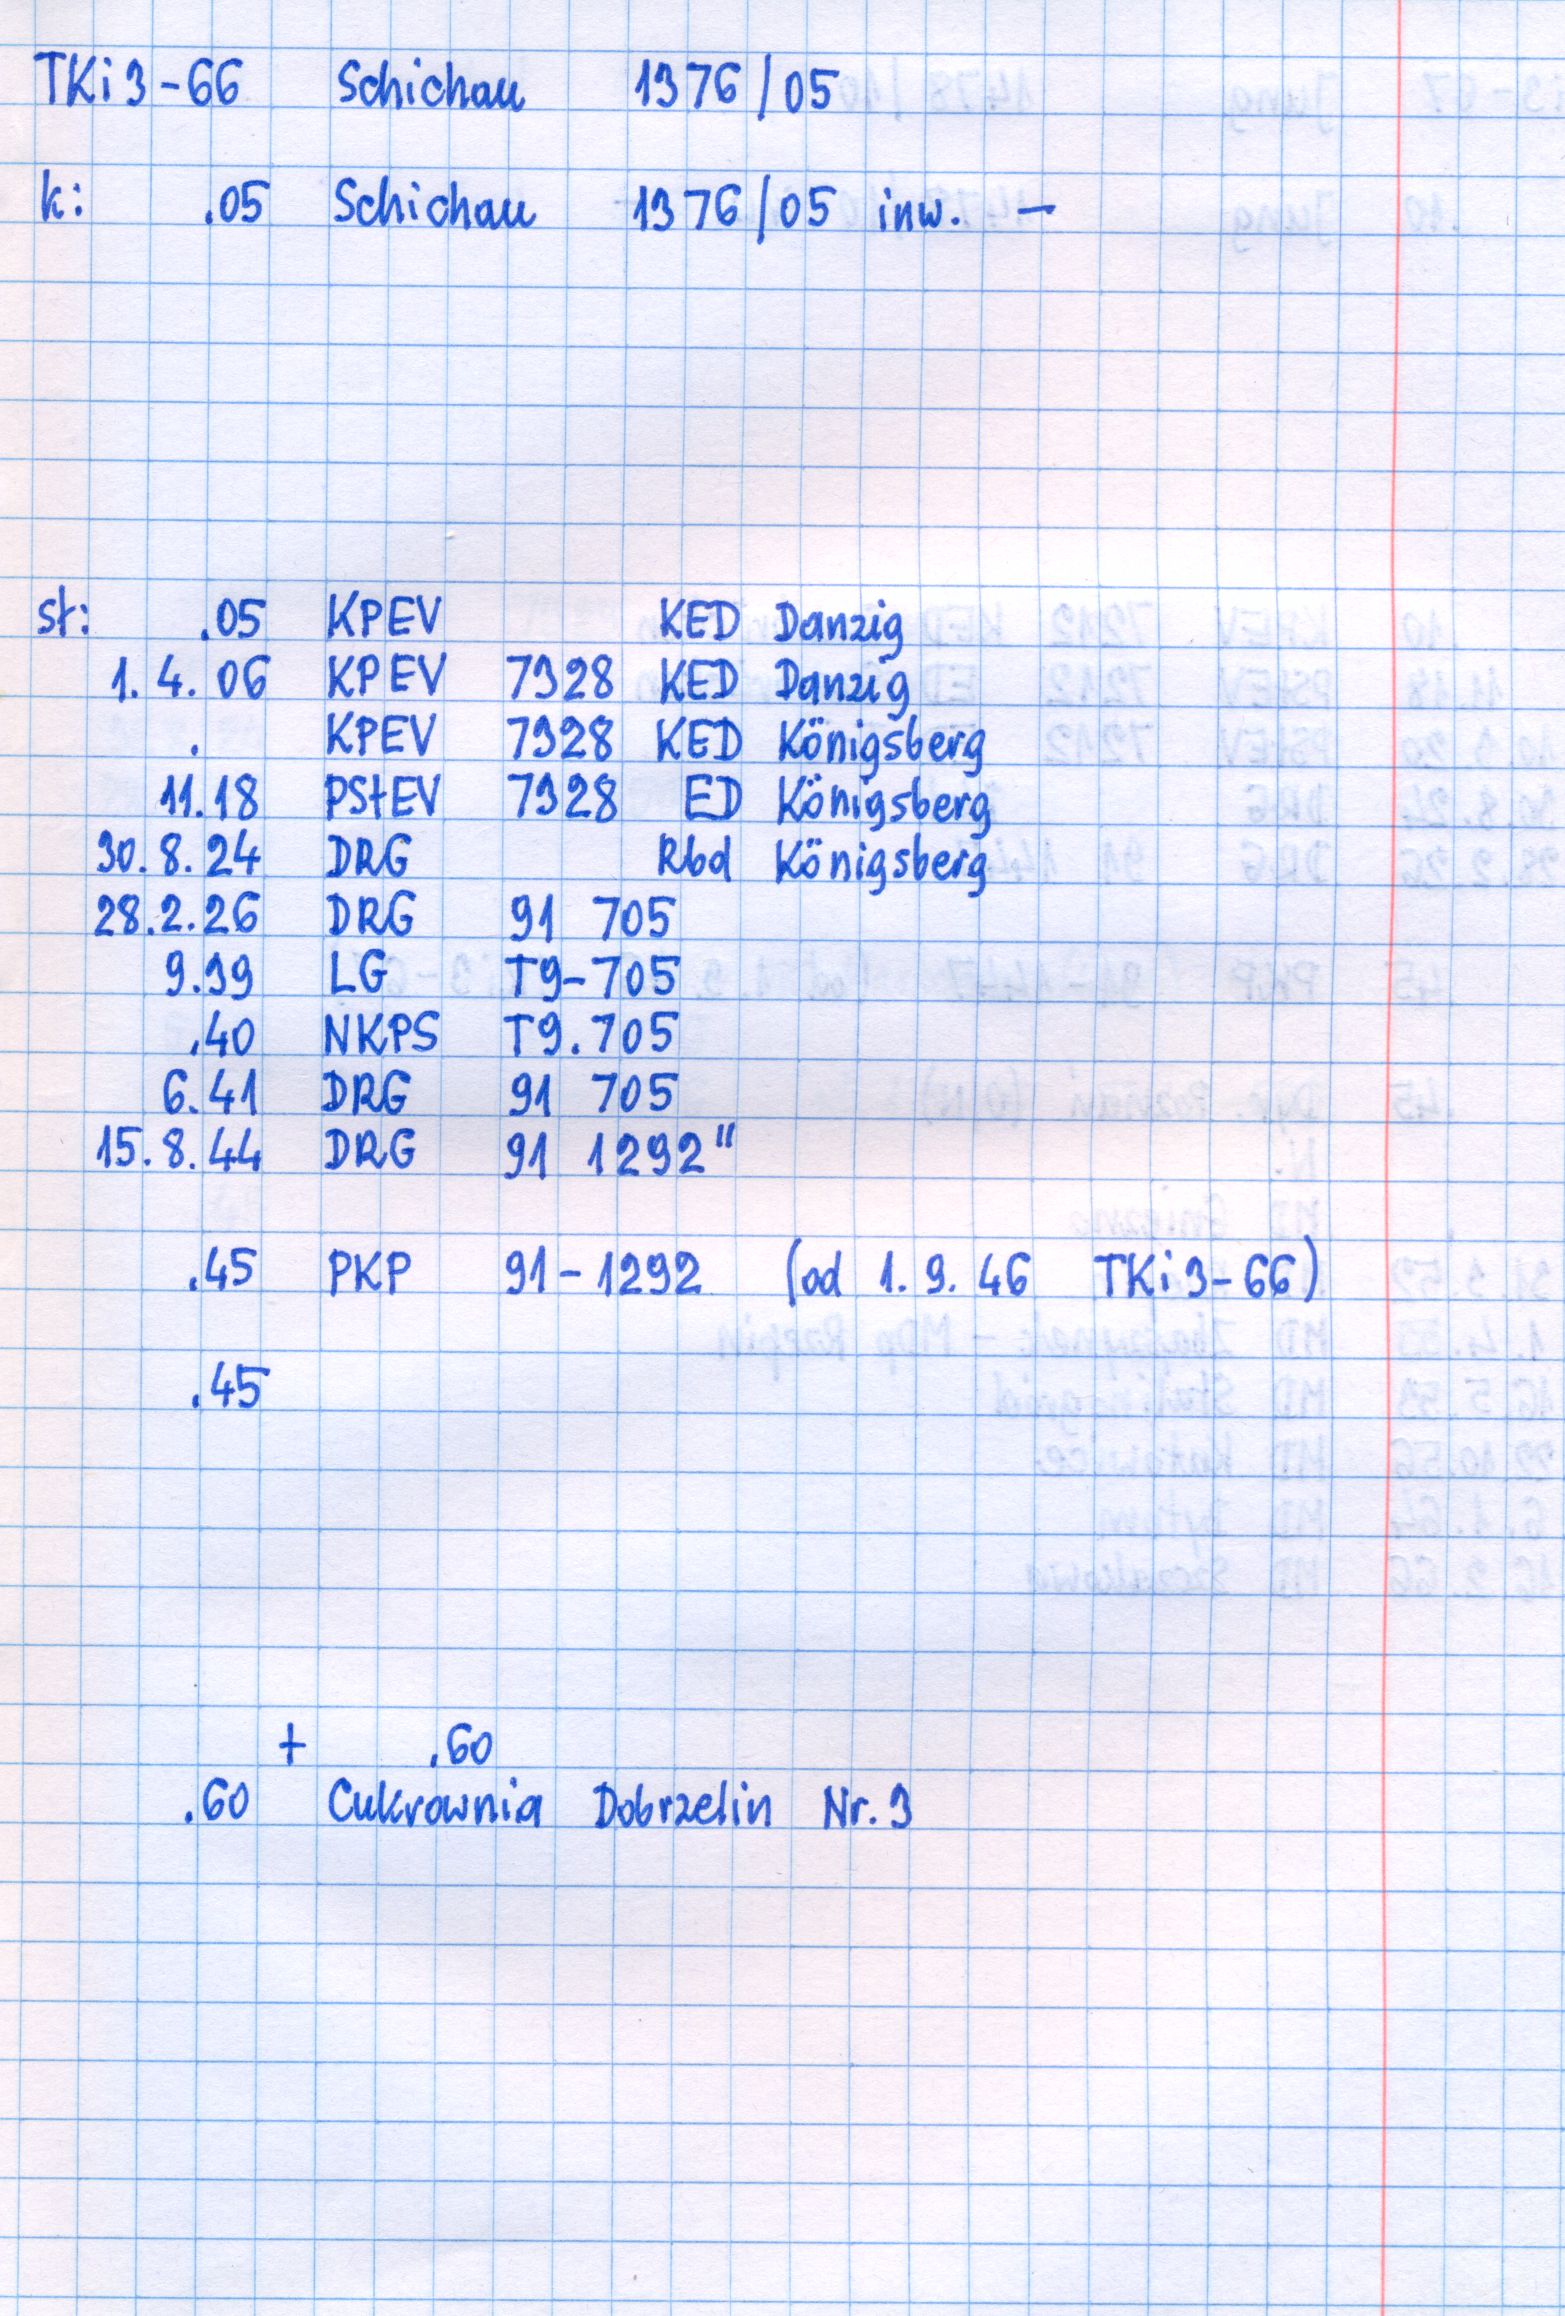 TKi3-66 Schichau 1376/05
k: .05 Schichau 1376/05 inw. –
st: .05 KPEV KED Danzig
1.4.06 KPEV 7328 KED Danzig
. KPEV 7328 KED Königsberg
11.18 PStEV 7328 ED Königsberg
30.8.24 DRG Rbd Königsberg
28.2.26 DRG 91 705
9.39 LG T9-705
.40 NKPS T9.705
6.41 DRG 91 705
15.8.44 DRG 91 1292"
.45 PKP 91-1292 (od 1.9.46 TKi3-66)
.45
+ .60
.60 Cukrownia Dobrzelin Nr.3